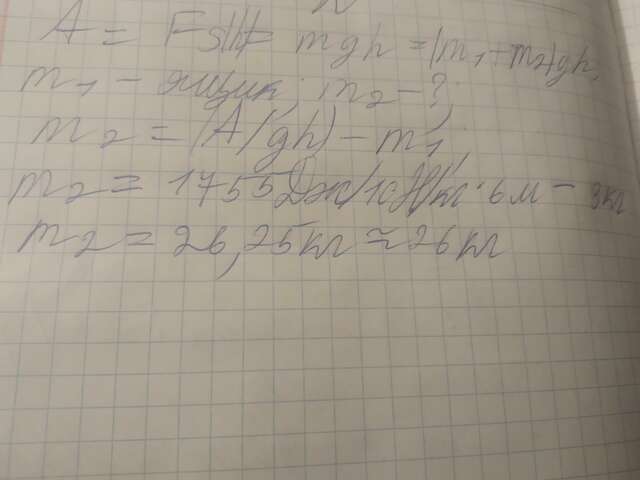 A = Fs = mgh = (m₁ + m₂)gh,
m₁ - ящик; m₂ - ?;
m₂ = (A/gh) - m₁;
m₂ = 1755Дж/10Н/кг · 6м - 3кг
m₂ = 26,25кг ≈ 26кг